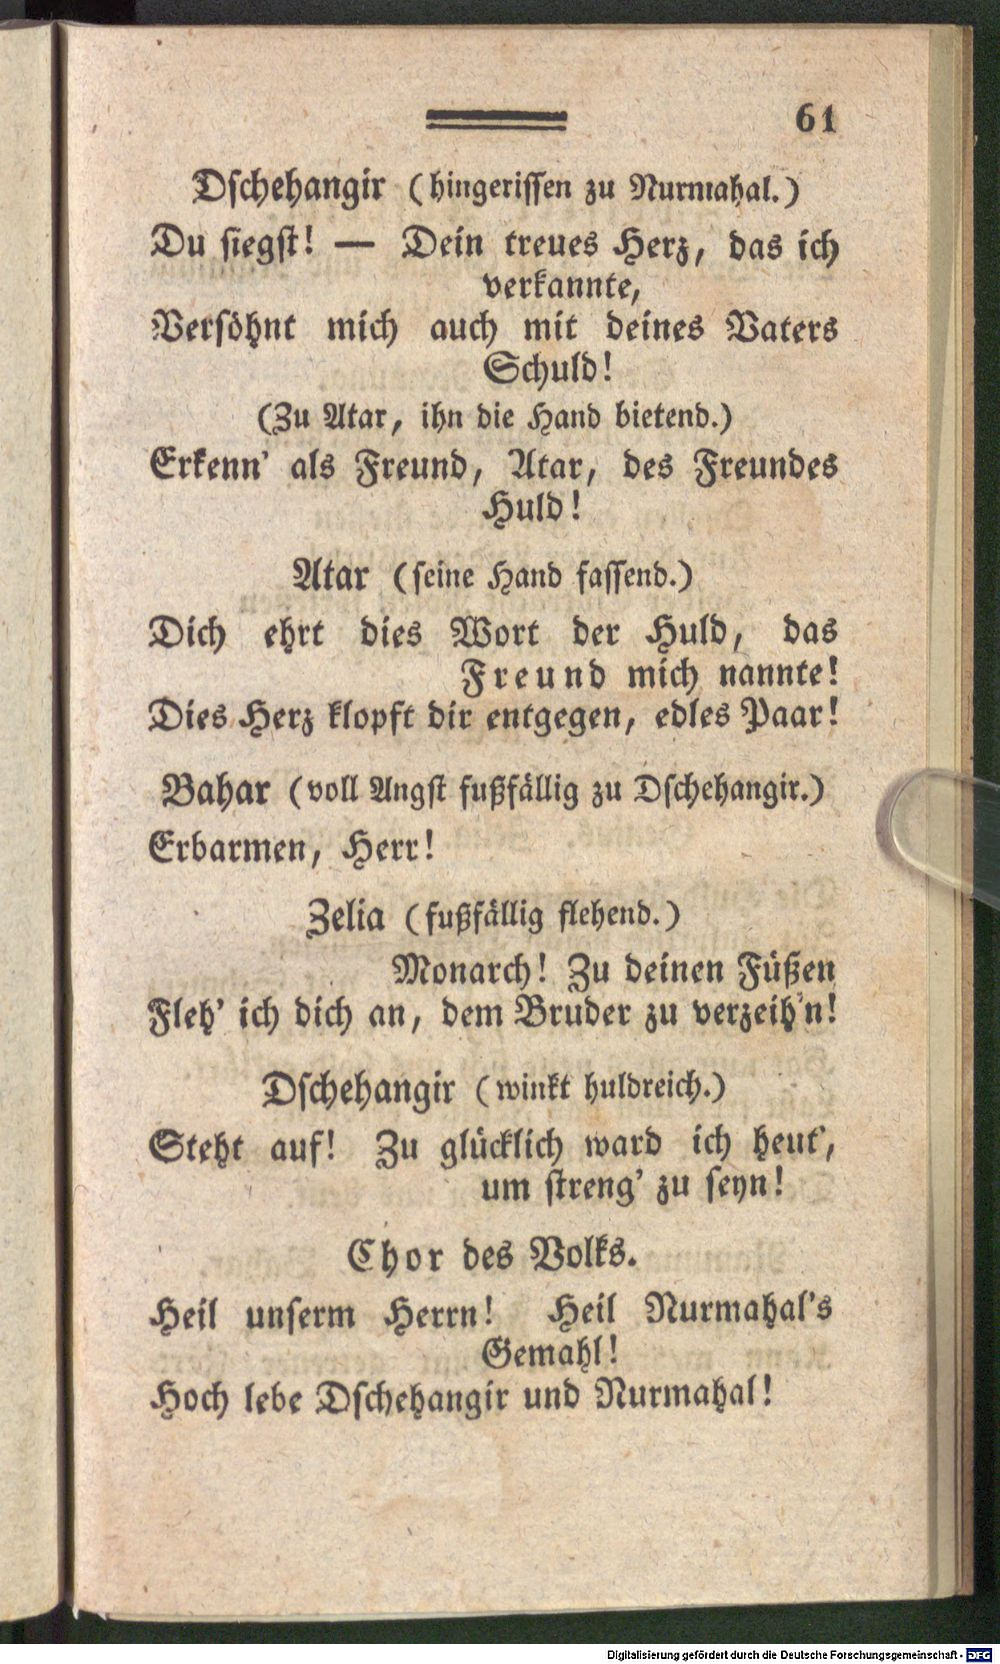 61
Dschehangir (hingerissen zu Nurmahal.)
Du siegst! — Dein treues Herz, das ich
verkannte,
Versöhnt mich auch mit deines Vaters
Schuld!
(Zu Atar, ihn die Hand bietend.)
Erkenn' als Freund, Atar, des Freundes
Huld!
Atar (seine Hand fassend.)
Dich ehrt dies Wort der Huld, das
Freund mich nannte!
Dies Herz klopft dir entgegen, edles Paar!
Bahar (voll Angst fußfällig zu Dschehangir.)
Erbarmen, Herr!
Zelia (fußfällig flehend.)
Monarch! Zu deinen Füßen
Fleh' ich dich an, dem Bruder zu verzeih'n!
Dschehangir (winkt huldreich.)
Steht auf! Zu glücklich ward ich heut',
um streng' zu seyn!
Chor des Volks.
Heil unserm Herrn! Heil Nurmahal's
Gemahl!
Hoch lebe Dschehangir und Nurmahal!
Digitalisierung gefördert durch die Deutsche Forschungsgemeinschaft - DFG